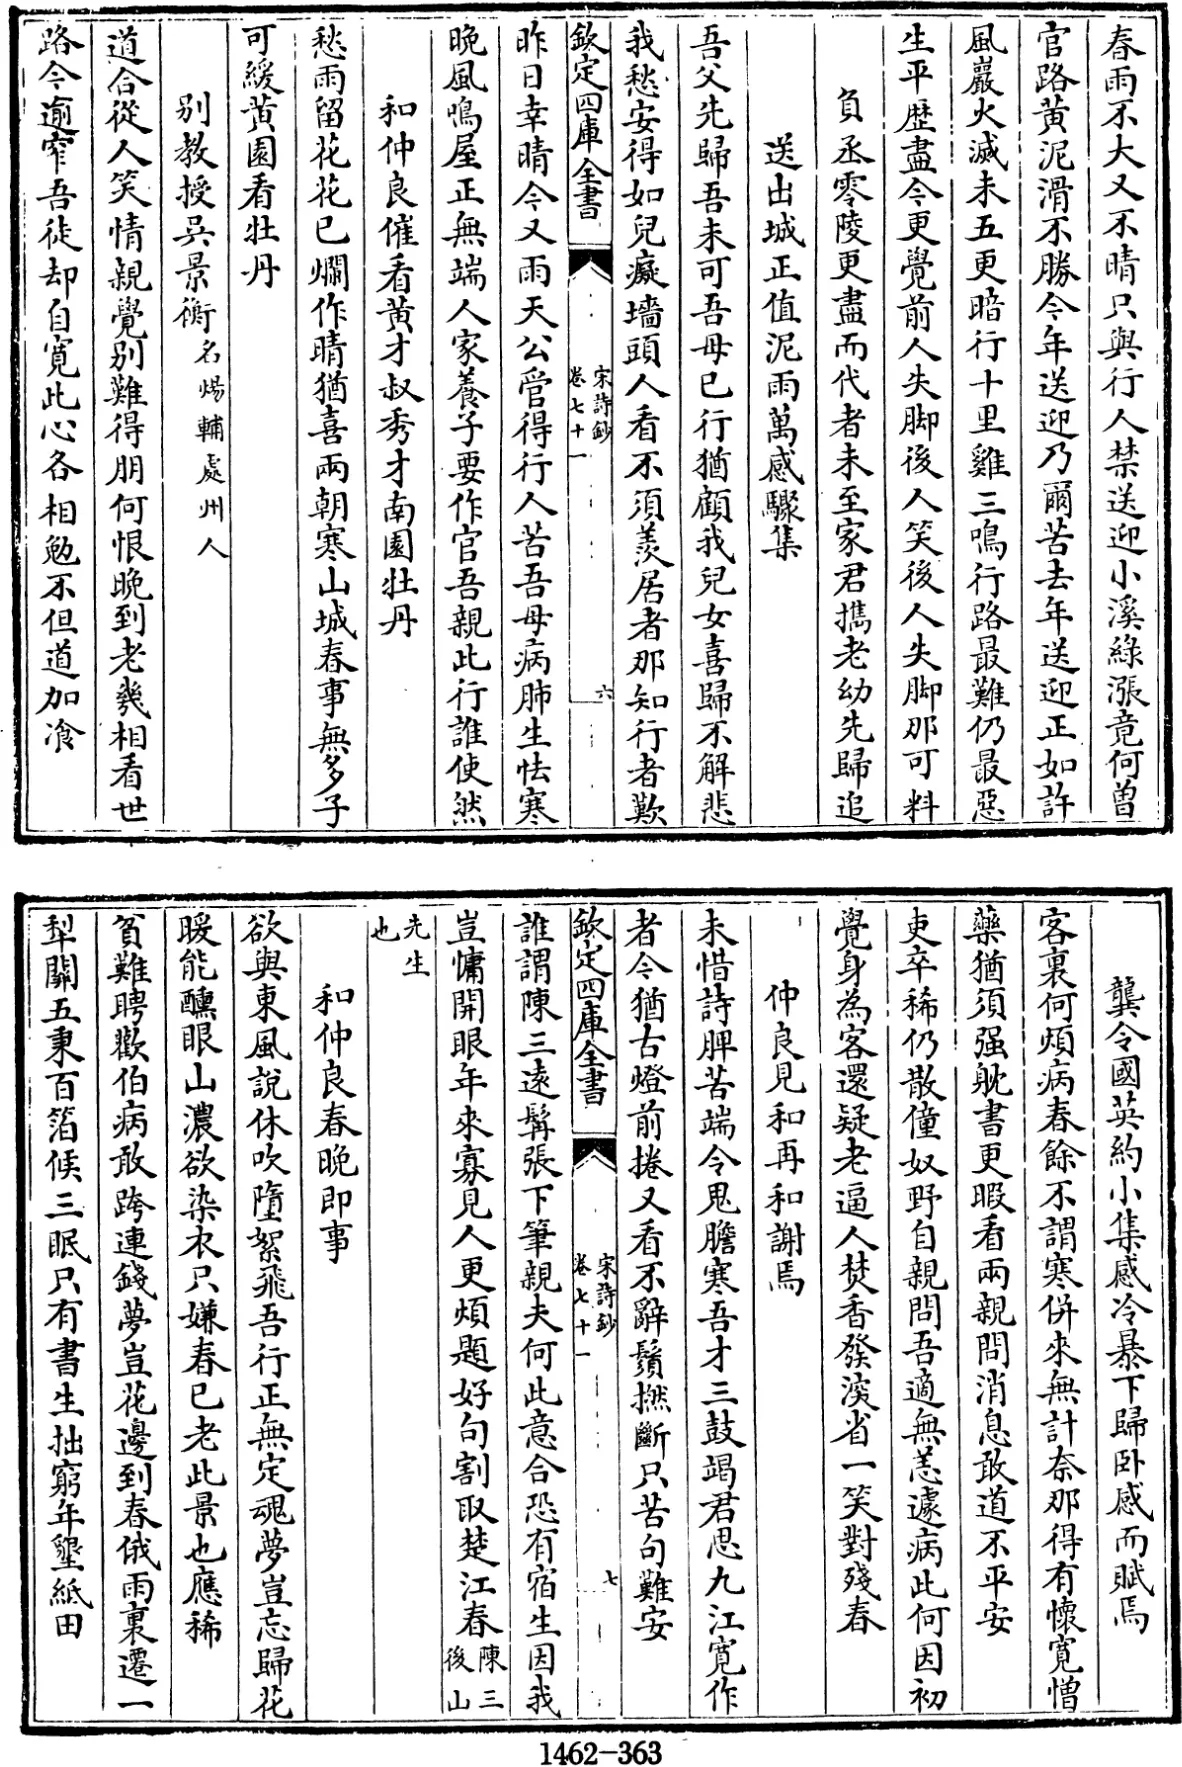 春雨不大又不晴只與行人禁送迎小溪綠漲竟何曽
官路黄泥滑不勝今年送迎乃爾苦去年送迎正如許
風巖火滅未五更暗行十里雞三鳴行路最難仍最惡
生平歴盡今更覺前人失脚後人笑後人失脚那可料
負丞零陵更盡而代者未至家君攜老幼先歸追
送出城正值泥雨萬感驟集
吾父先歸吾未可吾母已行猶顧我兒女喜歸不解悲
我愁安得如兒癡墻頭人看不須羡居者那知行者歎
欽定四庫全書
宋詩鈔
卷七十一
六
昨日幸晴今又雨天公管得行人苦吾母病肺生怯寒
晚風鳴屋正無端人家養子要作官吾親此行誰使然
和仲良催看黄才叔秀才南園牡丹
愁雨留花花已爛作晴猶喜兩朝寒山城春事無多子
可緩黄園看牡丹
别教授吳景衡名煬輔處州人
道合從人笑情親覺别難得朋何恨晚到老幾相看世
路今逾窄吾徒却自寬此心各相勉不但道加飡
龔令國英約小集感冷暴下歸卧感而賦焉
客裏何煩病春餘不謂寒併來無計奈那得有懷寛憎
藥猶須强躭書更暇看兩親問消息敢道不平安
吏卒稀仍散僮奴野自親問吾適無恙遽病此何因初
覺身為客還疑老逼人焚香發深省一笑對殘春
仲良見和再和謝焉
未惜詩脾苦端令鬼膽寒吾才三鼓竭君思九江寛作
者今猶古燈前捲又看不辭鬚撚斷只苦句難安
欽定四庫全書
宋詩鈔
卷七十一
七
誰謂陳三遠髯張下筆親夫何此意合恐有宿生因我
豈慵開眼年來寡見人更煩題好句割取楚江春陳三後山
先生也
和仲良春晚即事
欲與東風說休吹墮絮飛吾行正無定魂夢豈忘歸花
暖能醺眼山濃欲染衣只嫌春已老此景也應稀
貧難聘歡伯病敢跨連錢夢豈花邊到春俄雨裏遷一
犂關五秉百箔候三眠只有書生拙窮年墾紙田
1462-363